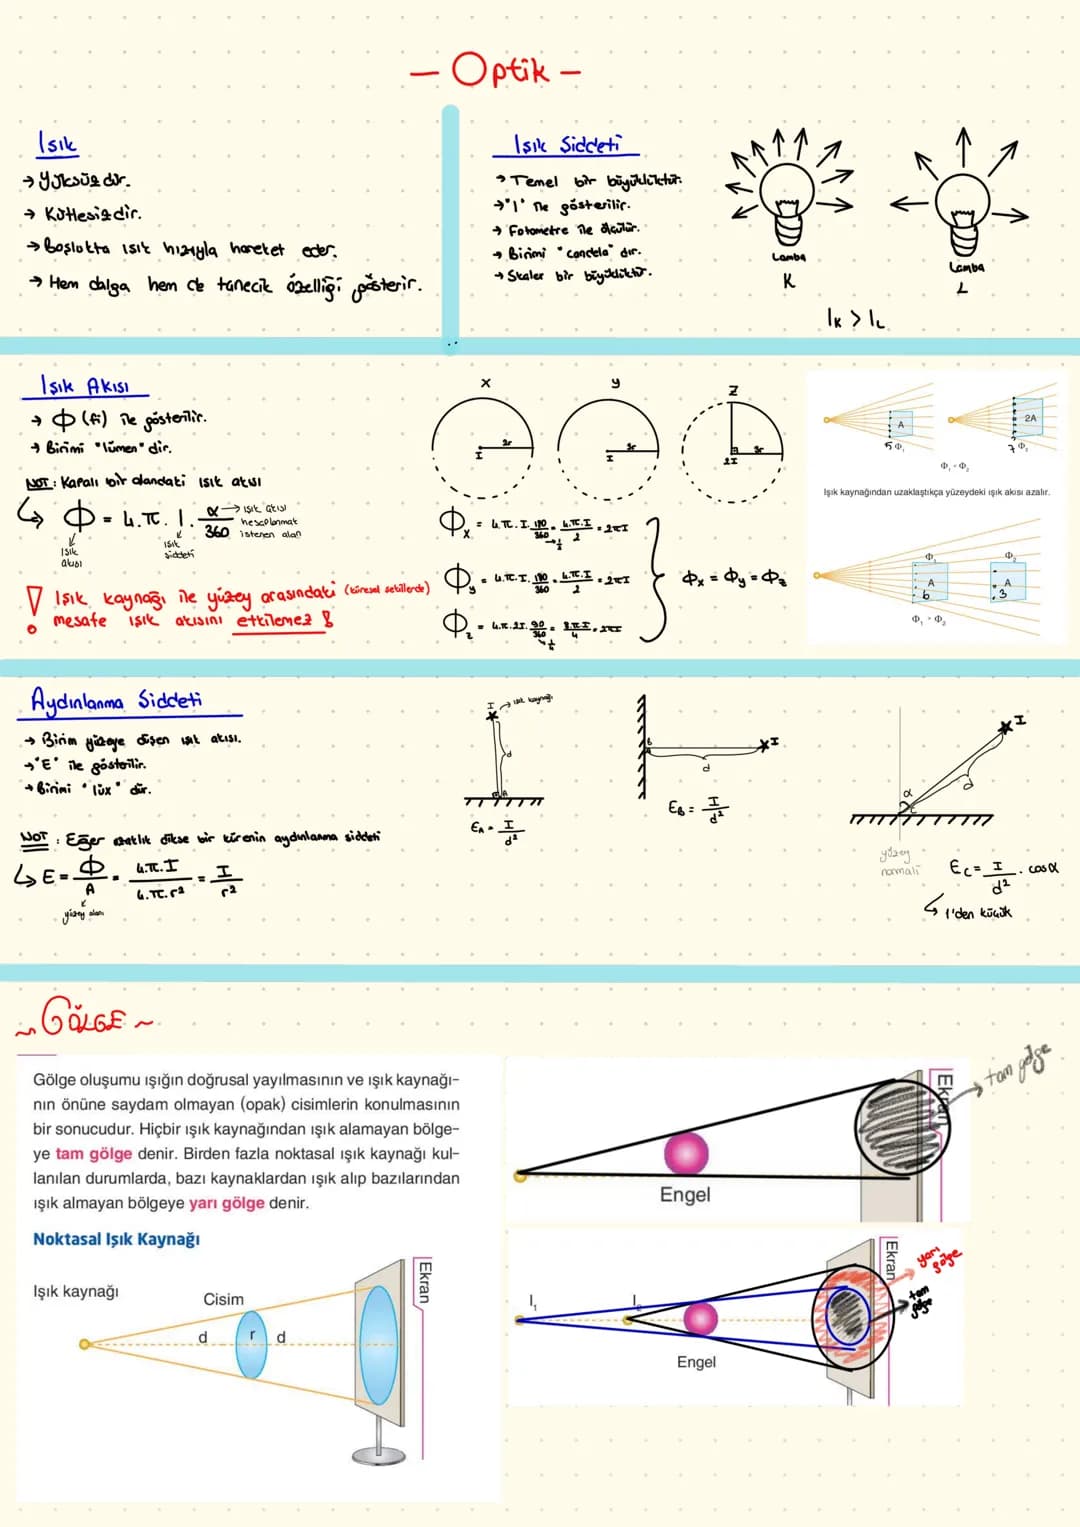 - Optik -
Işık
→ Yüksüzdür.
→ Kütlesizdir.
→ Boşlukta ışık hızıyla hareket eder.
→ Hem dalga hem de tanecik özelliği gösterir.
Işık Şiddeti
→ Temel bir büyüklüktür.
→ "I" ile gösterilir.
→ Fotometre ile ölçülür.
→ Birimi "candela" dır.
→ Skaler bir büyüklüktür.
Lamba
K
Lamba
L
IK > IL
Işık Akısı
→ Φ (fi) ile gösterilir.
→ Birimi "lümen" dir.
NOT: Kapalı bir alandaki ışık akısı
Φ = 4.π.I.α/360
→ ışık akısı hesaplanmak istenen alan
Işık akısı
ışık şiddeti
! Işık kaynağı ile yüzey arasındaki (küresel şekillerde)
mesafe ışık akısını etkilemez !
x
y
z
2r
I
3r
I
3r
2I
Φx = 4.π.I.180/360 = 4.π.I/2 = 2πI
Φy = 4.π.I.180/360 = 4.π.I/2 = 2πI
Φz = 4.π.2I.90/360 = 8.π.I/4 = 2πI
Φx = Φy = Φz
A
5 Φ₁
2A
7 Φ₂
Işık kaynağından uzaklaştıkça yüzeydeki ışık akısı azalır.
Φ₁
A
6
Φ₂
A
3
Φ₁ > Φ₂
Aydınlanma Şiddeti
→ Birim yüzeye düşen ışık akısı.
→ "E" ile gösterilir.
→ Birimi "lüx" dür.
NOT: Eğer uzaklık dikse bir kürenin aydınlanma şiddeti
E = Φ/A = 4.π.I/4.π.r² = I/r²
yüzey alanı
I → ışık kaynağı
d
A
EA = I/d²
B
I
d
EB = I/d²
I
d
α
C
yüzey normali
EC = I/d² . cosα
1'den küçük
~ GÖLGE ~
Gölge oluşumu ışığın doğrusal yayılmasının ve ışık kaynağı-
nın önüne saydam olmayan (opak) cisimlerin konulmasının
bir sonucudur. Hiçbir ışık kaynağından ışık alamayan bölge-
ye tam gölge denir. Birden fazla noktasal ışık kaynağı kul-
lanılan durumlarda, bazı kaynaklardan ışık alıp bazılarından
ışık almayan bölgeye yarı gölge denir.
Noktasal Işık Kaynağı
Işık kaynağı
Cisim
d
r
d
Ekran
Engel
Ekran
tam gölge
I₁
I₂
Engel
Ekran
yarı gölge
tam gölge